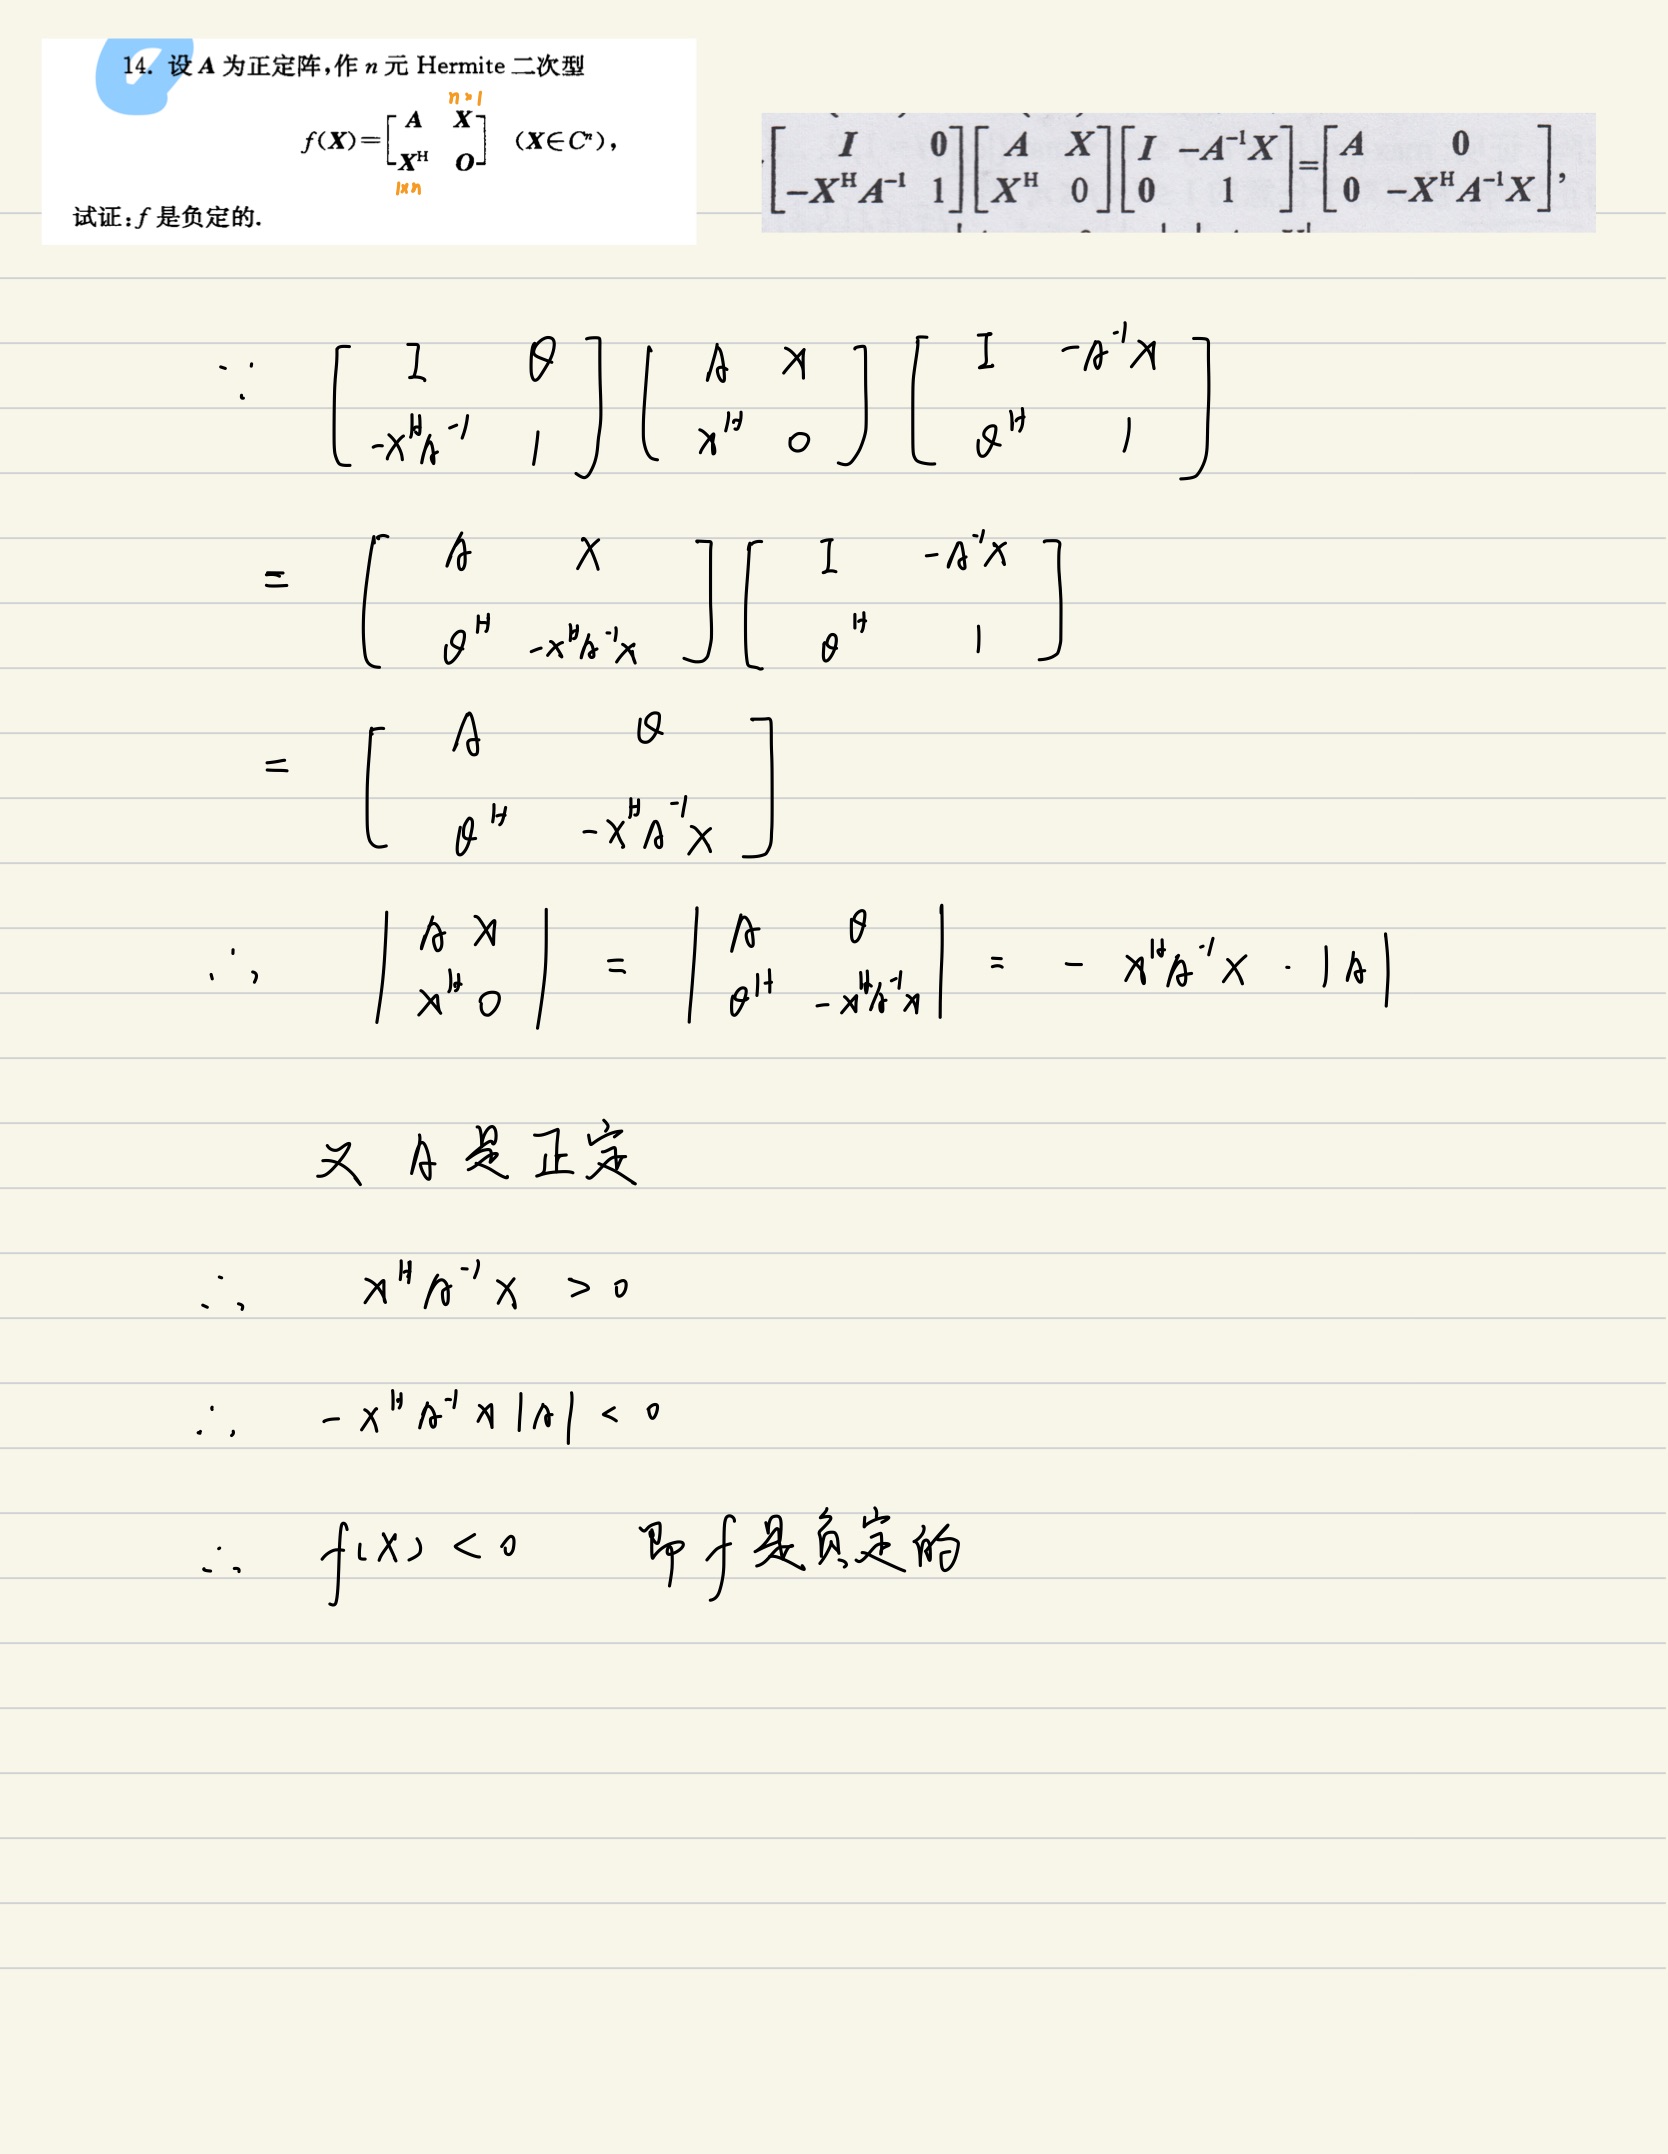 14. 设 A 为正定阵,作 n 元 Hermite 二次型
n×1
f(X)=[A X; X^H O] (X∈C^n),
1×n
试证:f 是负定的.
[I 0; -X^H A^-1 1][A X; X^H 0][I -A^-1 X; 0 1]=[A 0; 0 -X^H A^-1 X],
∵ [I θ; -X^H A^-1 1] [A X; X^H 0] [I -A^-1 X; θ^H 1]
= [A X; θ^H -X^H A^-1 X] [I -A^-1 X; θ^H 1]
= [A θ; θ^H -X^H A^-1 X]
∴ |A X; X^H 0| = |A θ; θ^H -X^H A^-1 X| = - X^H A^-1 X · |A|
又 A 是正定
∴ X^H A^-1 X > 0
∴ - X^H A^-1 X |A| < 0
∴ f(X) < 0 即 f 是负定的